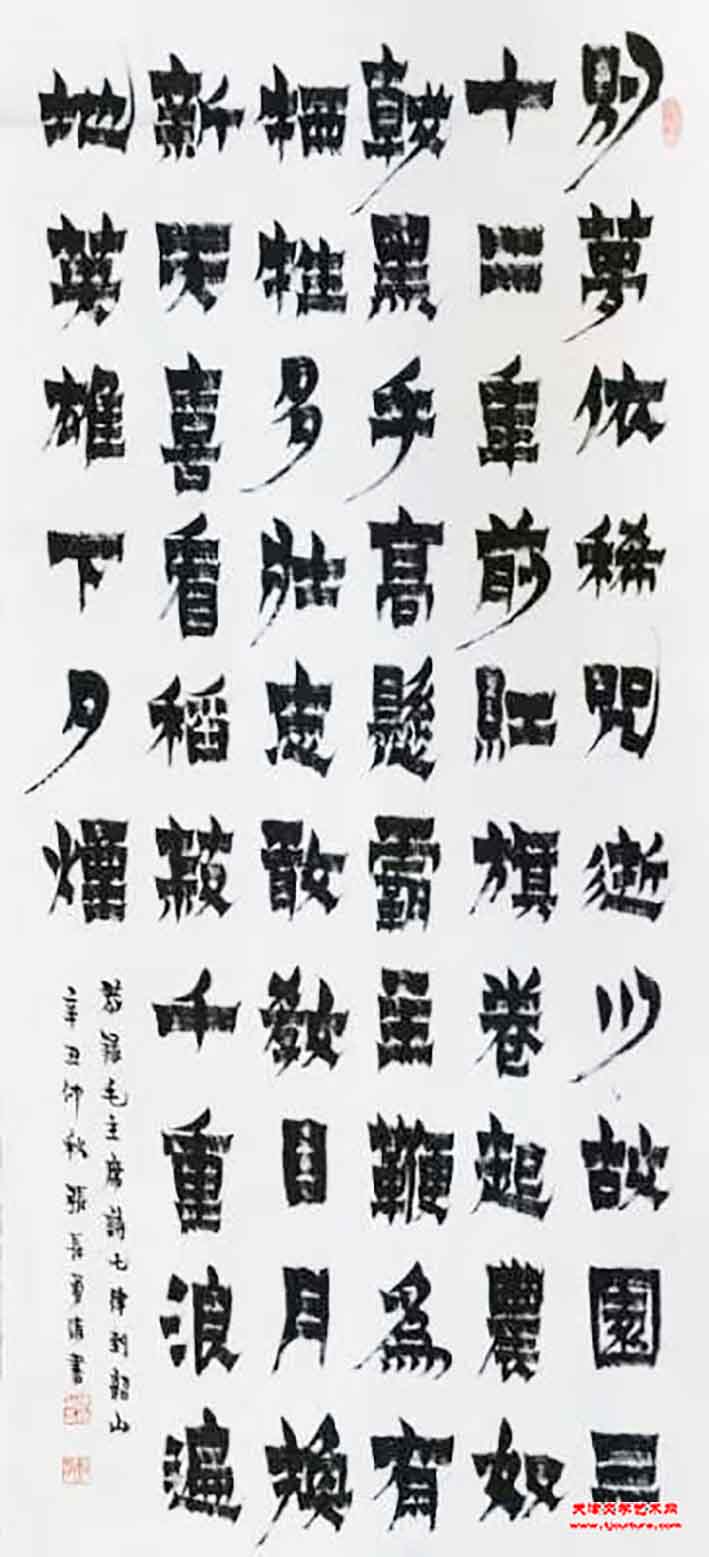 别夢依稀咒逝川故園三
十二年前紅旗卷起農奴
戟黑手高懸霸主鞭爲有
牺牲多壯志敢教日月換
新天喜看稻菽千重浪遍
地英雄下夕煙
恭錄毛主席詩七律到韶山
辛丑仲秋張長勇書
天津文学艺术网
www.tjculture.com